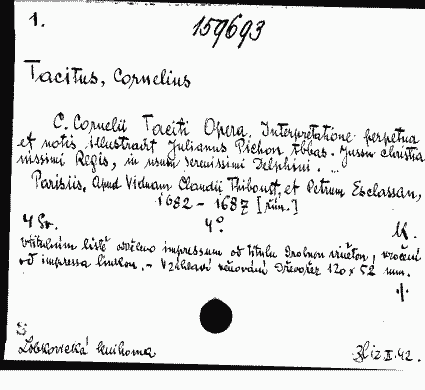 1.
159693
Tacitus, Cornelius
C. Cornelii Taciti Opera. Interpretatione perpetua
et notis illustravit Julianus Pichon Abbas. Jussu Christia
nissimi Regis, in usum serenissimi Delphini. ...
Parisiis, Apud Viduam Claudii Thiboust, et Petrum Esclassan,
1682 - 1687 [rím.]
4 Sv. 4°.
V titulním listě odděleno impressum od titulu drobnou vinětou, vročení
od impressa linkou. - V záhlaví věnování dřevořez 120 x 52 mm.
Lobkovická knihovna
II. 42.